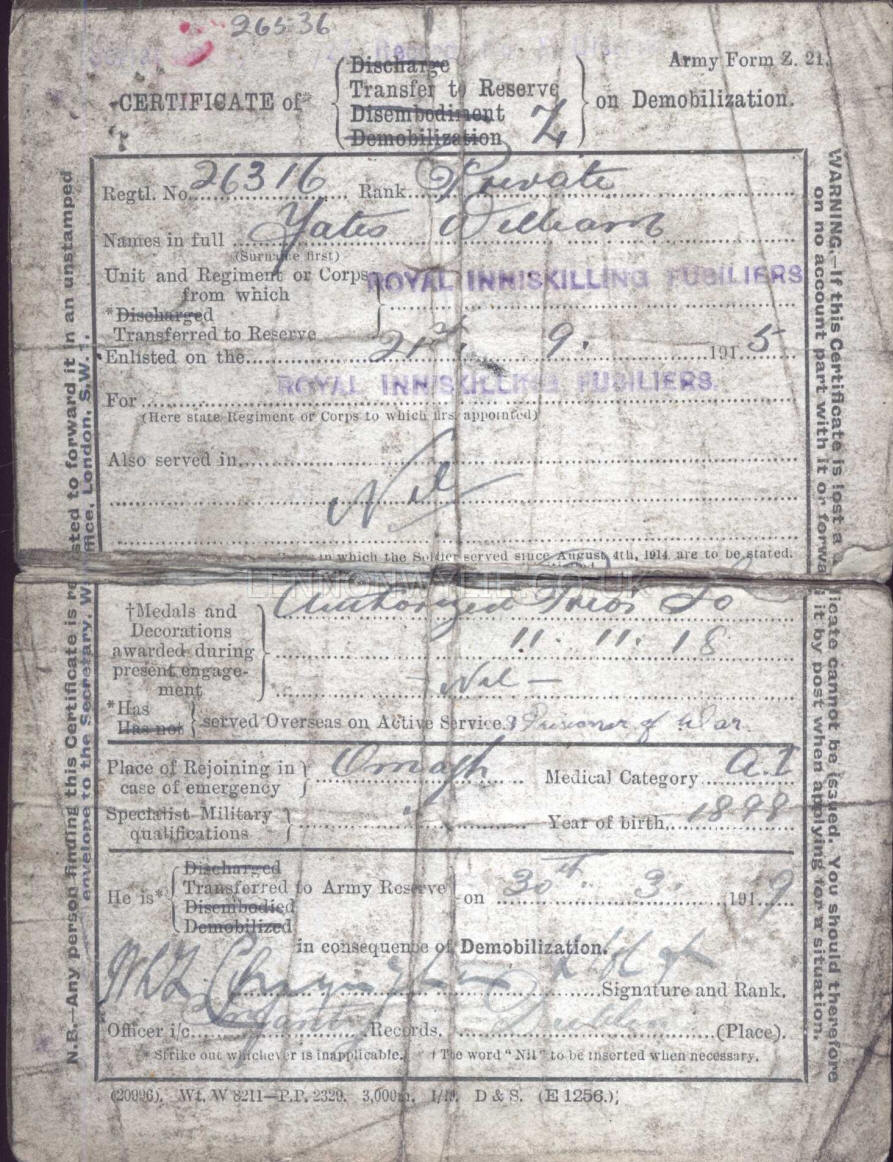 26536
Army Form Z. 21.
CERTIFICATE of*
Discharge
Transfer to Reserve
Disembodiment
Demobilization
Z
on Demobilization.
Regtl. No. 26316 Rank Private
Names in full Yates William
(Surname first)
Unit and Regiment or Corps
from which
*Discharged
Transferred to Reserve
ROYAL INNISKILLING FUSILIERS
Enlisted on the 21st. 9. 1915
For ROYAL INNISKILLING FUSILIERS.
(Here state Regiment or Corps to which first appointed)
Also served in
Nil
in which the Soldier served since August 4th, 1914, are to be stated.
LENNONWYLIE.CO.UK
†Medals and
Decorations
awarded during
present engage-
ment
Authorized Prior to
11. 11. 18
- Nil -
*Has
Has not
served Overseas on Active Service. Prisoner of War
Place of Rejoining in
case of emergency
Omagh
Medical Category A.I
Specialist Military
qualifications
"
Year of birth 1898
He is*
Discharged
Transferred to Army Reserve
Disembodied
Demobilized
on 30th. 3. 1919
in consequence of Demobilization.
Signature and Rank.
Officer i/c Records. Dublin (Place).
*Strike out whichever is inapplicable. †The word "Nil" to be inserted when necessary.
(20996). Wt. W 8211—P.P. 2329. 3,000m. 1/19. D & S. (E 1256.)
N.B.—Any person finding this Certificate is requested to forward it in an unstamped
envelope to the Secretary, War Office, London, S.W. 1.
WARNING.—If this Certificate is lost a duplicate cannot be issued. You should therefore
on no account part with it or forward it by post when applying for a situation.